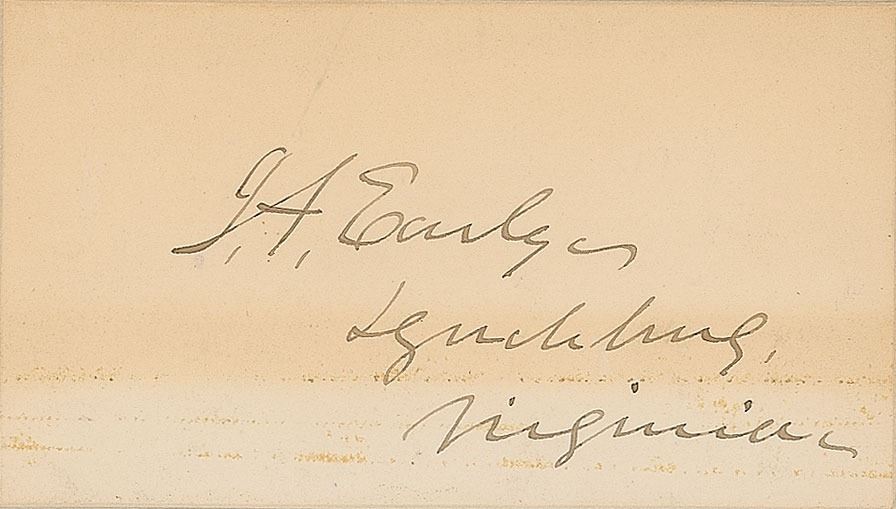 J. A. Early
Lynchburg,
Virginia